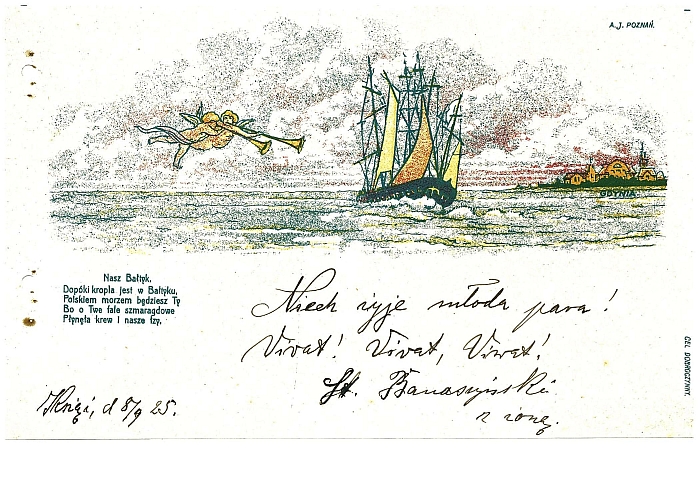 A. J. POZNAŃ.
GDYNIA
Nasz Bałtyk.
Dopóki kropla jest w Bałtyku,
Polskiem morzem będziesz Ty
Bo o Twe fale szmaragdowe
Płynęła krew i nasze łzy.
Niech żyje młoda para!
Vivat! Vivat, Viwat!
St. Banaszyński
z żoną.
d 8/9 25.
CEL DOBROCZYNNY.